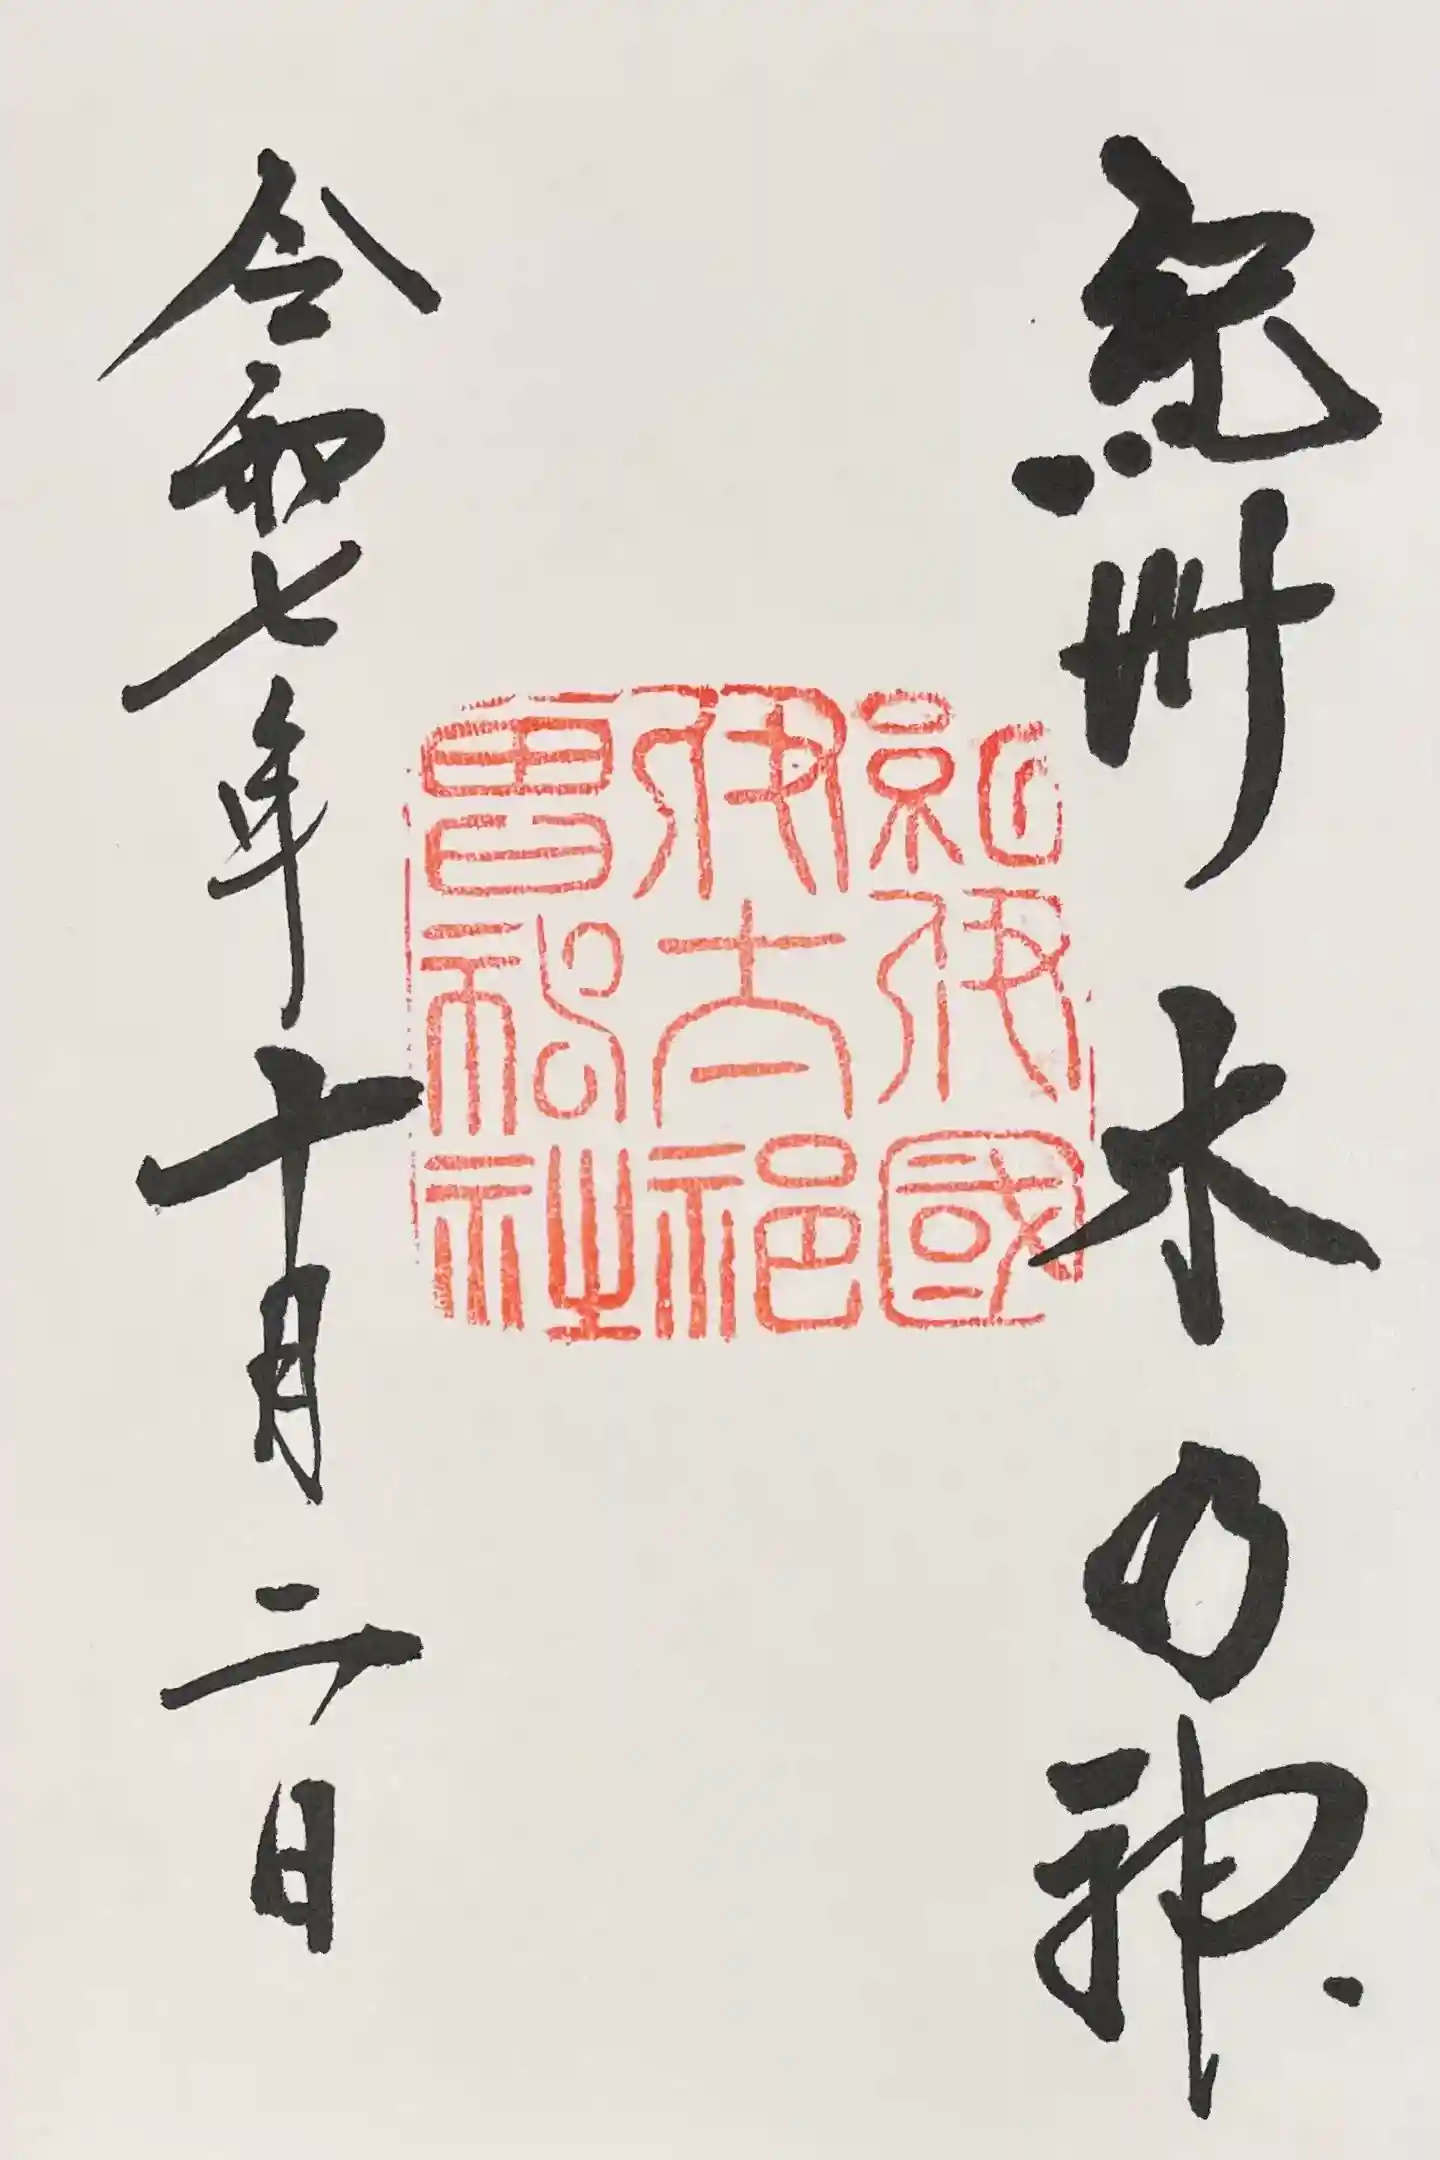 紀州木の神
紀伊國
伊太祁
曽神社
令和七年十月二日